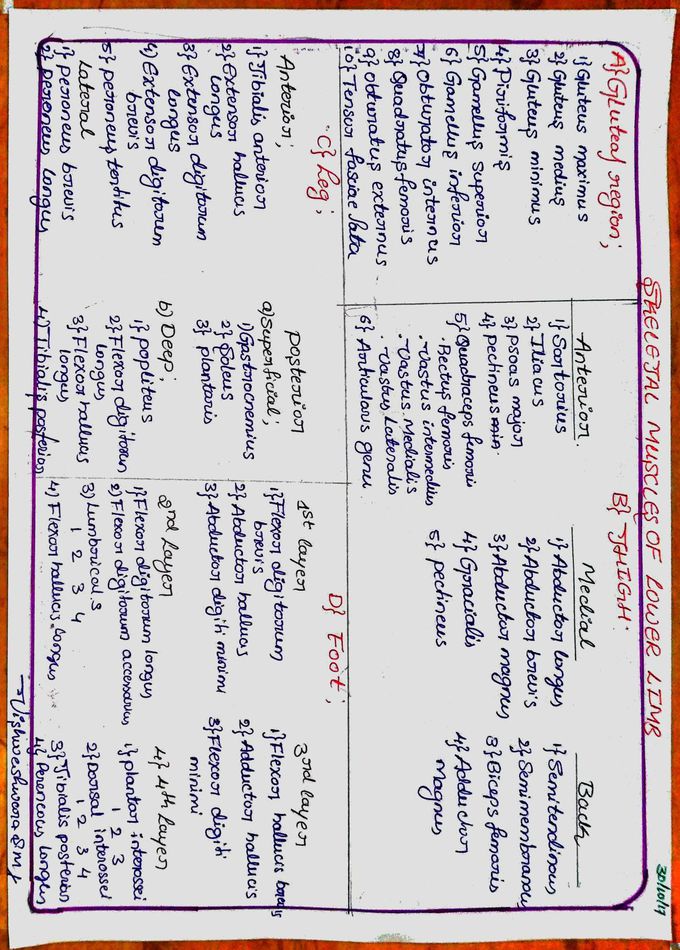 30/10/17
SKELETAL MUSCLES OF LOWER LIMB
A} Gluteal region;
1} Gluteus maximus
2} Glutus medius
3} Gluteus minimus
4} Piriformis
5} Gamellus superior
6} Gamellus inferior
7} Obturator internus
8} Quadratus femoris
9} obturatus externus
10} Tensor fasiae lata
B} THIGH:
Anterior
1} Sartorius
2} Iliacus
3} psoas major
4} pectineus min
5} Quadraceps femoris
. Rectus femoris
. Vastus intermedius
. Vastus Medialis
. Vastus Lateralis
6} Articularis genu
Medial
1} Abductor longus
2} Abductor brevis
3} Abductor magnus
4} Gracialis
5} pectineus
Back
1} Semitendinous
2} Semimembranous
3} Biceps femoris
4} Adductor
magnus
C} Leg;
Anterior;
1} Tibialis anterior
2} Extensor hallucis
longus
3} Extensor digitorum
longus
4} Extensor digitorum
brevis
5} peroneus tertitus
Lateral
1} peroneus brevis
2} peroneus longus
posterior
a) Superficial;
1} Gastrocnemius
2} Soleus
3} plantaris
b) Deep;
1} popliteus
2} Flexor digitorum
longus
3} Flexor hallucis
longus
4) Tibialis posterior
D} Foot;
1st layer
1} Flexor digitorum
brevis
2} Abductor hallucis
3} Abductor digiti minimi
2nd layer
1} Flexor digitorum longus
2) Flexor digitorum accessorius
3) Lumbricals
1 2 3 4
4) Flexor hallucis longus
3rd layer
1} Flexor hallucis brevis
2} Adductor hallucis
3} Flexor digiti
minimi
4} 4th Layer
1} plantar interossei
1 2 3
2} Dorsal interossei
1 2 3 4
3} Tibialis posterior
4} Peroneous longus